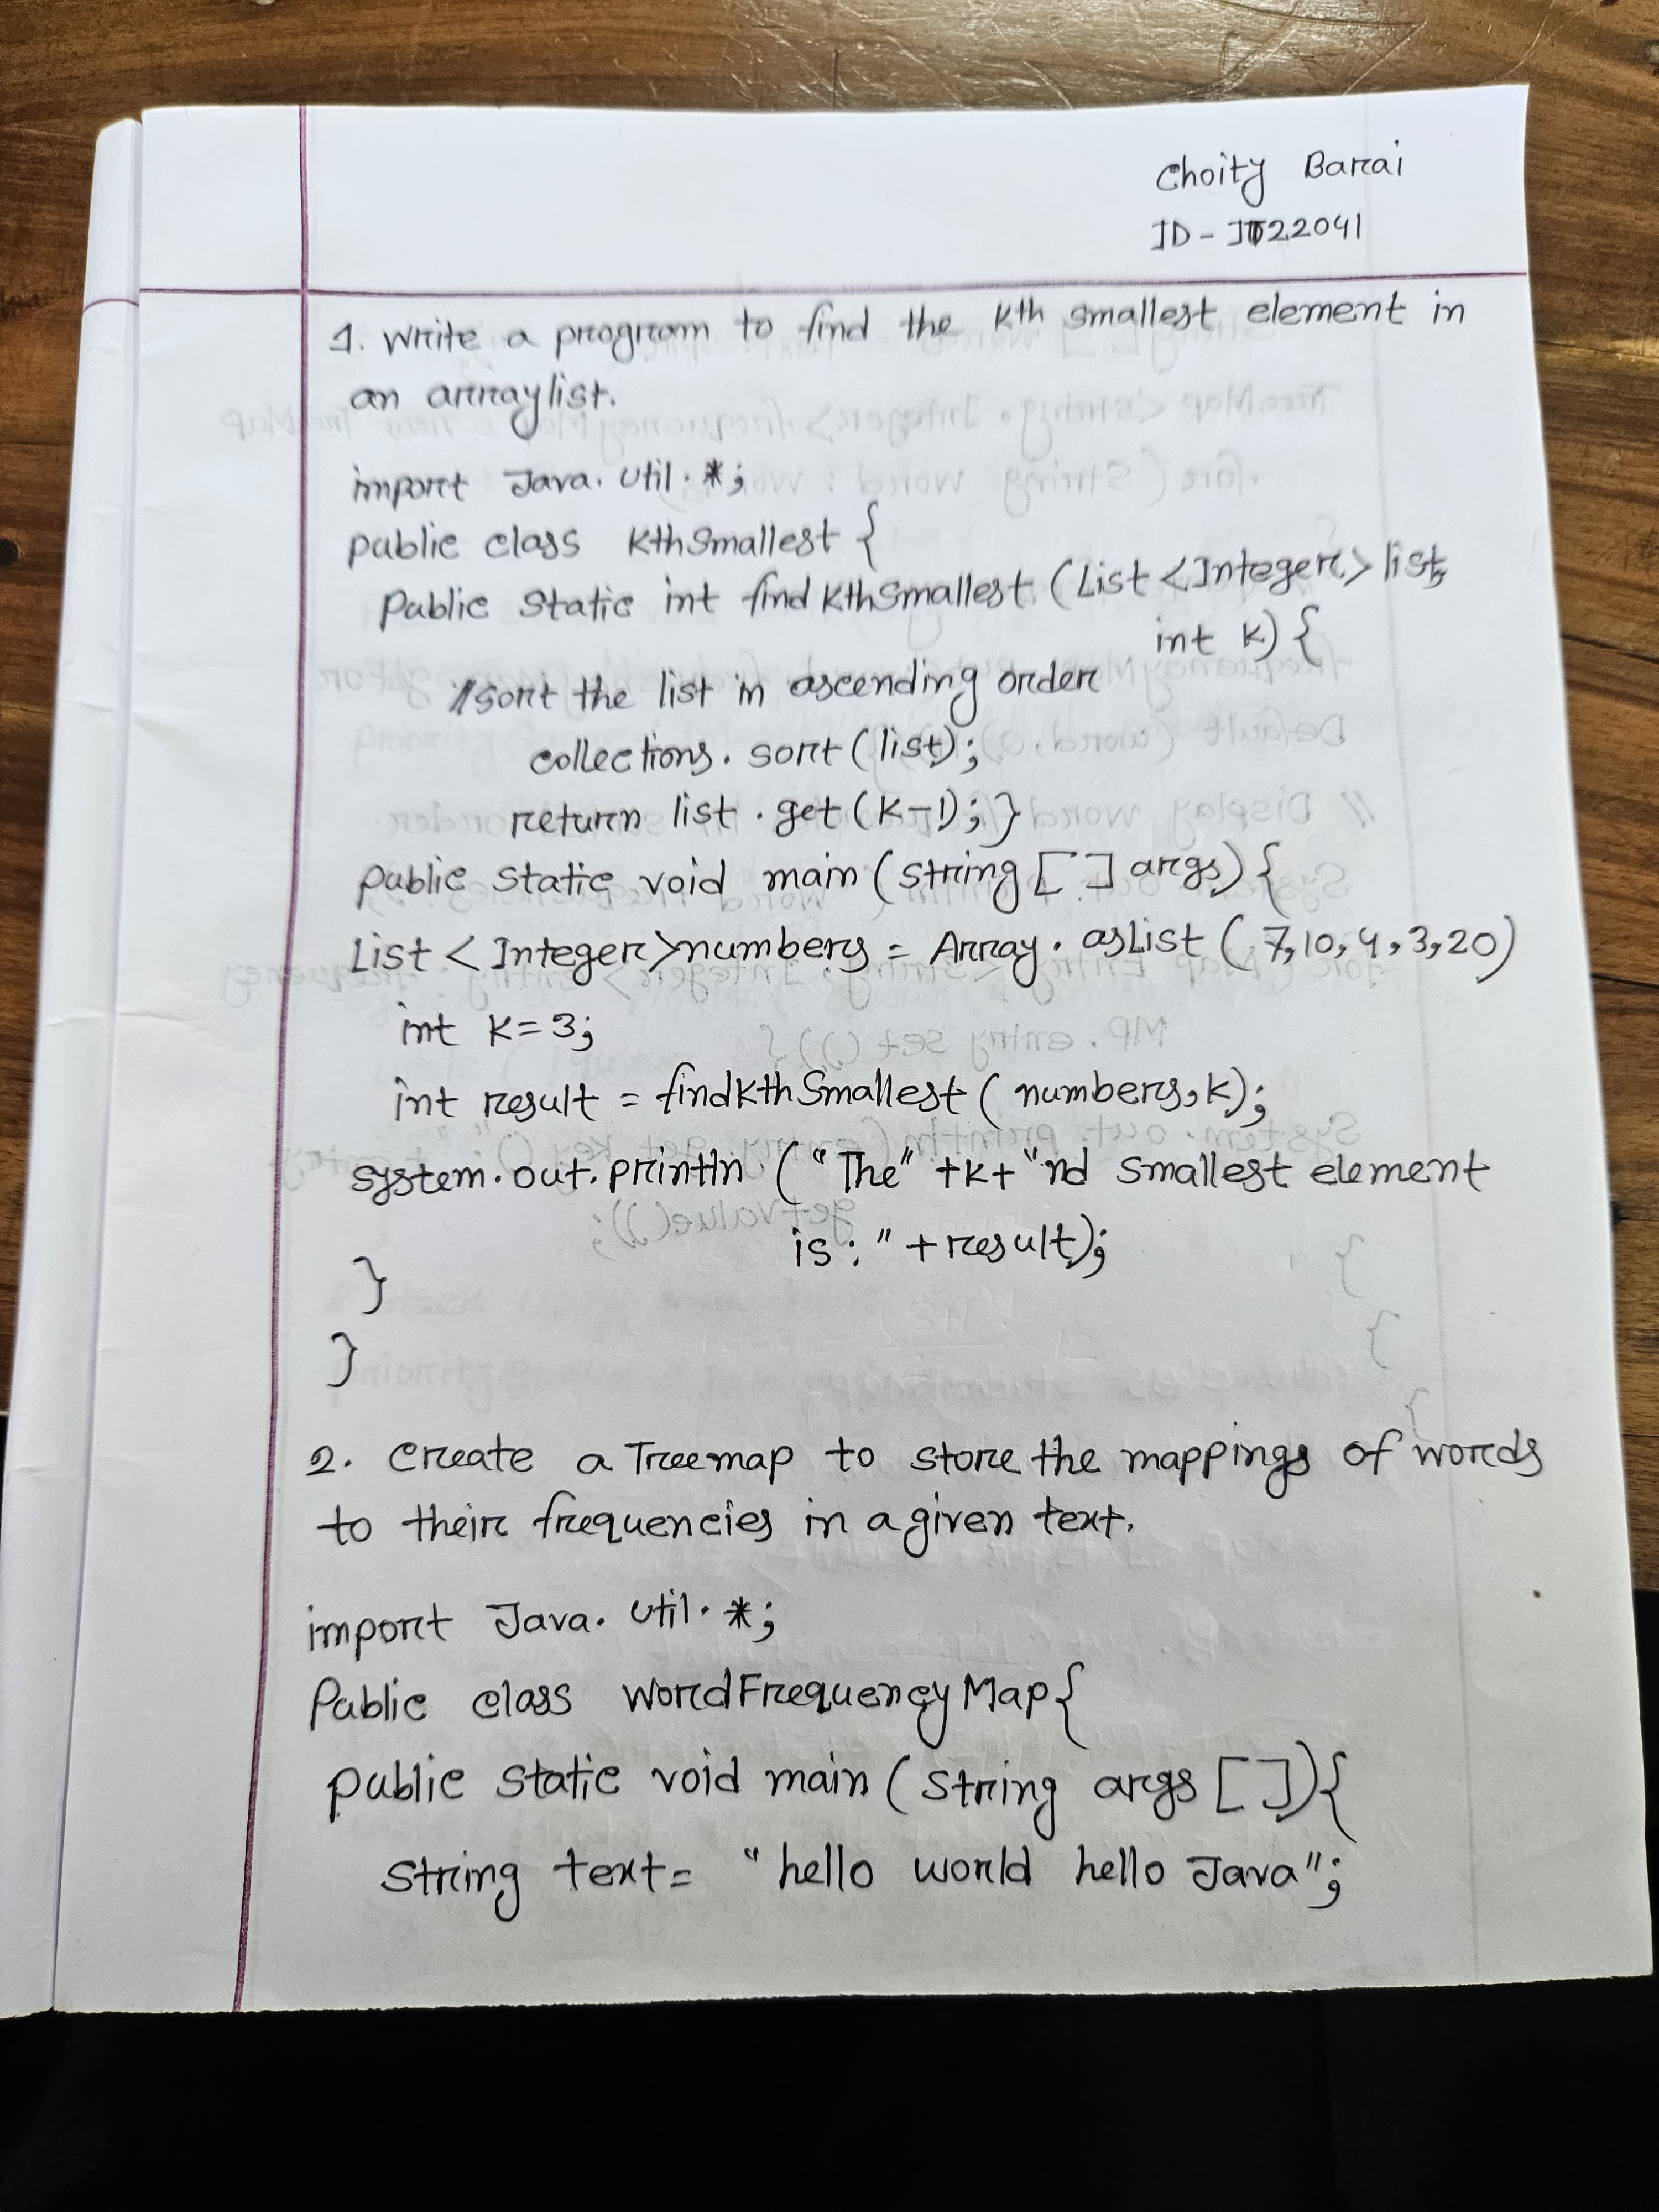 Choity Barai
ID - IT22041
1. Write a program to find the Kth smallest element in
an arraylist.
import Java. util. *;
public class KthSmallest {
Public Static int findKthSmallest (List <Integer> list,
int K) {
//sort the list in ascending order
collections. sort (list);
return list . get (K-1); }
public static void main (string [ ] args) {
List < Integer>numbers = Array. asList ( 7,10, 4, 3, 20)
int K = 3;
int result = findkthSmallest ( numbers, k);
system. out. println ( "The" +k+ "nd smallest element
is : " + result);
}
}
2. Create a Treemap to store the mappings of words
to their frequencies in a given text.
import Java. util. *;
Public class WordFrequencyMap {
public static void main ( string args [ ]) {
string text = "hello world hello Java";